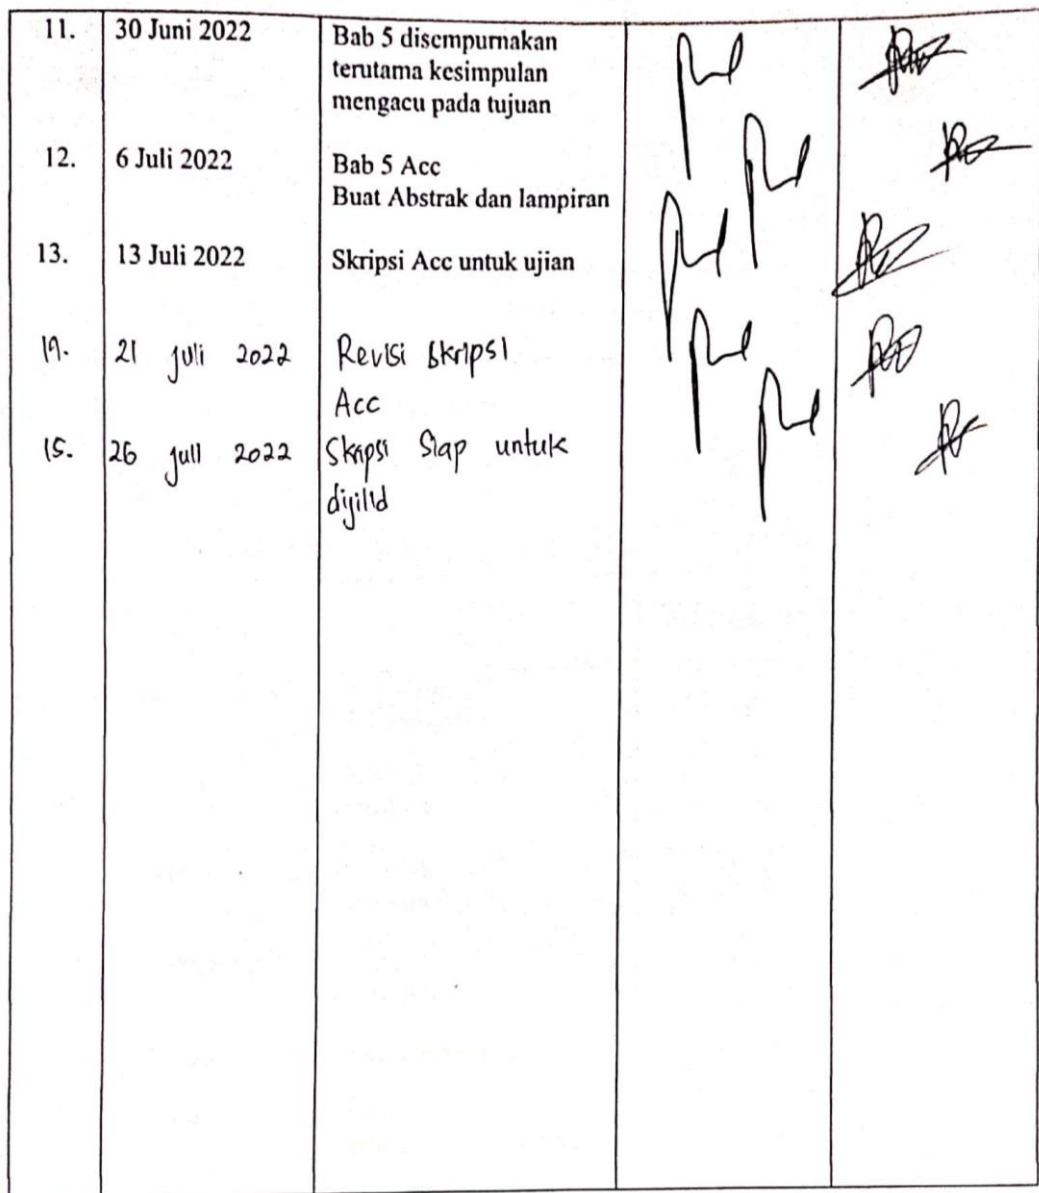 11. 30 Juni 2022 Bab 5 disempurnakan
terutama kesimpulan
mengacu pada tujuan
12. 6 Juli 2022 Bab 5 Acc
Buat Abstrak dan lampiran
13. 13 Juli 2022 Skripsi Acc untuk ujian
14. 21 Juli 2022 Revisi Skripsi
Acc
15. 26 Juli 2022 Skripsi Siap untuk
dijilid